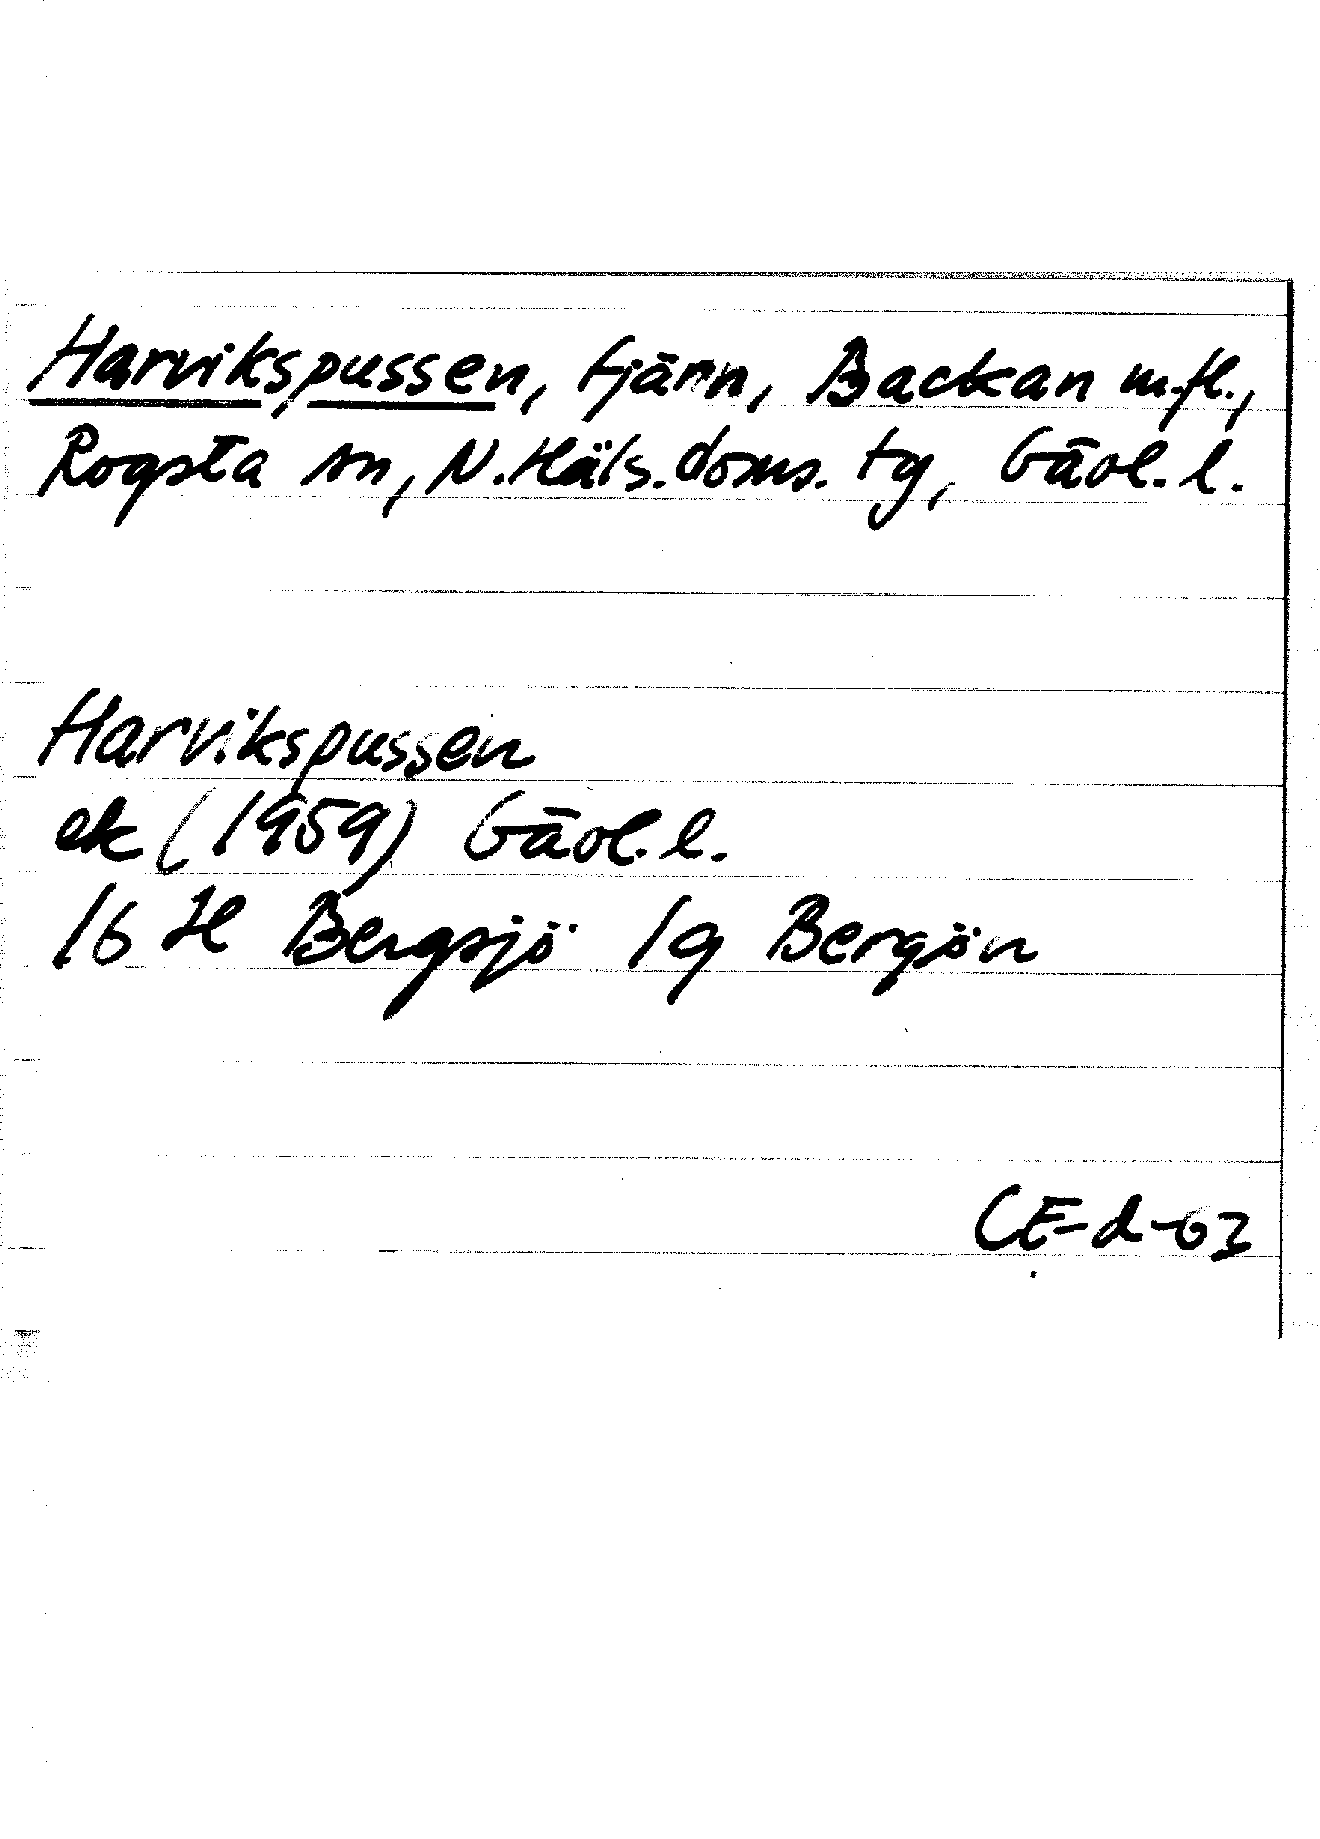 Harvikspussen, tjärn, Backan m.fl.,
Rogsta sn, N. Häls. doms. tg, Gävl. l.
Harvikspussen
ek (1959) Gävl. l.
16 H Bergsjö 1g Bergön
CE-d-63